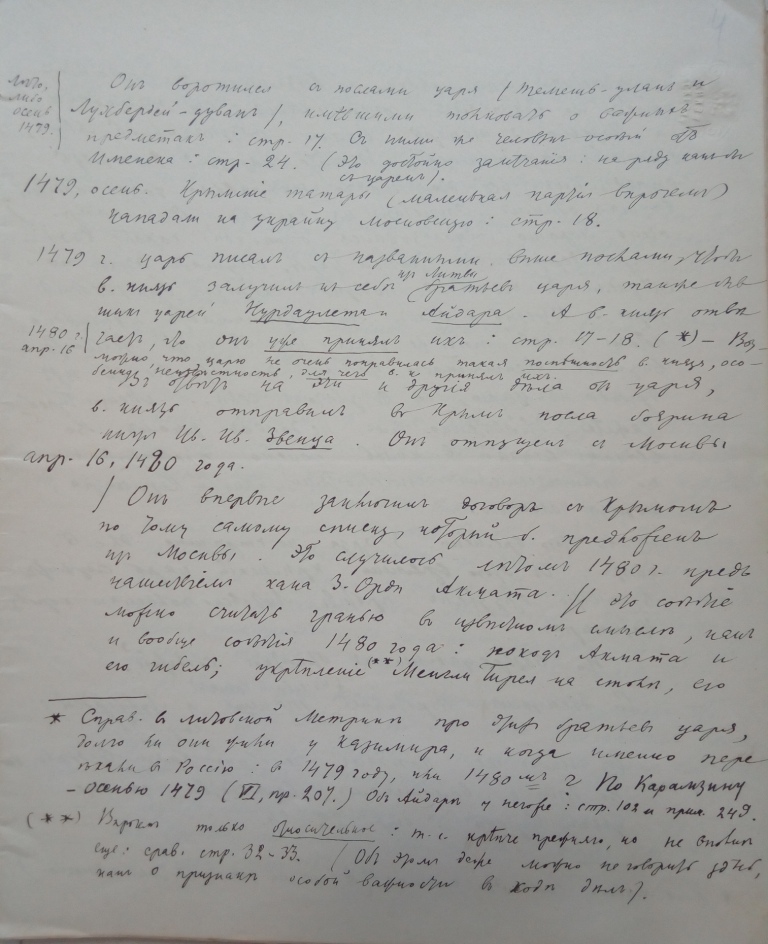 лѣто,
либо
осень
1479.
Онъ воротился съ послами царя (Темешъ-уланъ и
Лукбердей-дуванъ), имѣвшими толковать о важныхъ
предметахъ: стр. 17. Съ ними же человѣкъ особый отъ
Именека: стр. 24. (Это достойно замѣчанія: наряду какъ бы
съ царемъ).
1479, осень. Крымскіе татары (маленькая партія впрочемъ)
нападали на украйну московскую: стр. 18.
1479 г. царь писалъ съ названными выше послами, чтобы
в. князь залучилъ къ себѣ изъ Литвы братьевъ царя, также быв
шихъ царей Нурдаулета и Айдара. А в. князь отвѣ
чаетъ, что онъ уже принялъ ихъ: стр. 17-18. (*) - Воз-
можно, что царю не очень понравилась такая поспѣшность в. князя, осо-
бенно неизвѣстность, для чего в. к. принялъ ихъ.
1480 г.
апр. 16
Въ отвѣтъ на эти и другія дѣла отъ царя,
в. князь отправилъ въ Крымъ посла боярина
князя Ив. Ив. Звенца. Онъ отпущенъ съ Москвы
апр. 16, 1480 года.
/ Онъ впервые заключилъ договоръ съ Крымомъ
по тому самому списку, который б. предложенъ
изъ Москвы. Это случилось лѣтомъ 1480 г. предъ
нашествіемъ хана З. Орды Ахмата. // Это событіе
можно считать гранью въ извѣстномъ смыслѣ, какъ
и вообще событія 1480 года: походъ Ахмата и
его гибель; укрѣпленіе (**) Менгли Гирея на столѣ, его
* Справ. въ литовской Метрикѣ про этихъ братьевъ царя,
долго ли они жили у Казимира, и когда именно пере
ѣхали въ Россію: въ 1479 году, или 1480 мъ? По Карамзину
- осенью 1479 (VI, пр. 207.) Объ Айдарѣ у него же: стр. 102 и прим. 249.
(**) Впрочемъ только относительное: т.-е. крѣпче прежняго, но не вполнѣ
еще: срав. стр. 32-33. (Объ этомъ даже можно не говорить здѣсь,
какъ о признакѣ особой важности въ ходѣ дѣлъ).